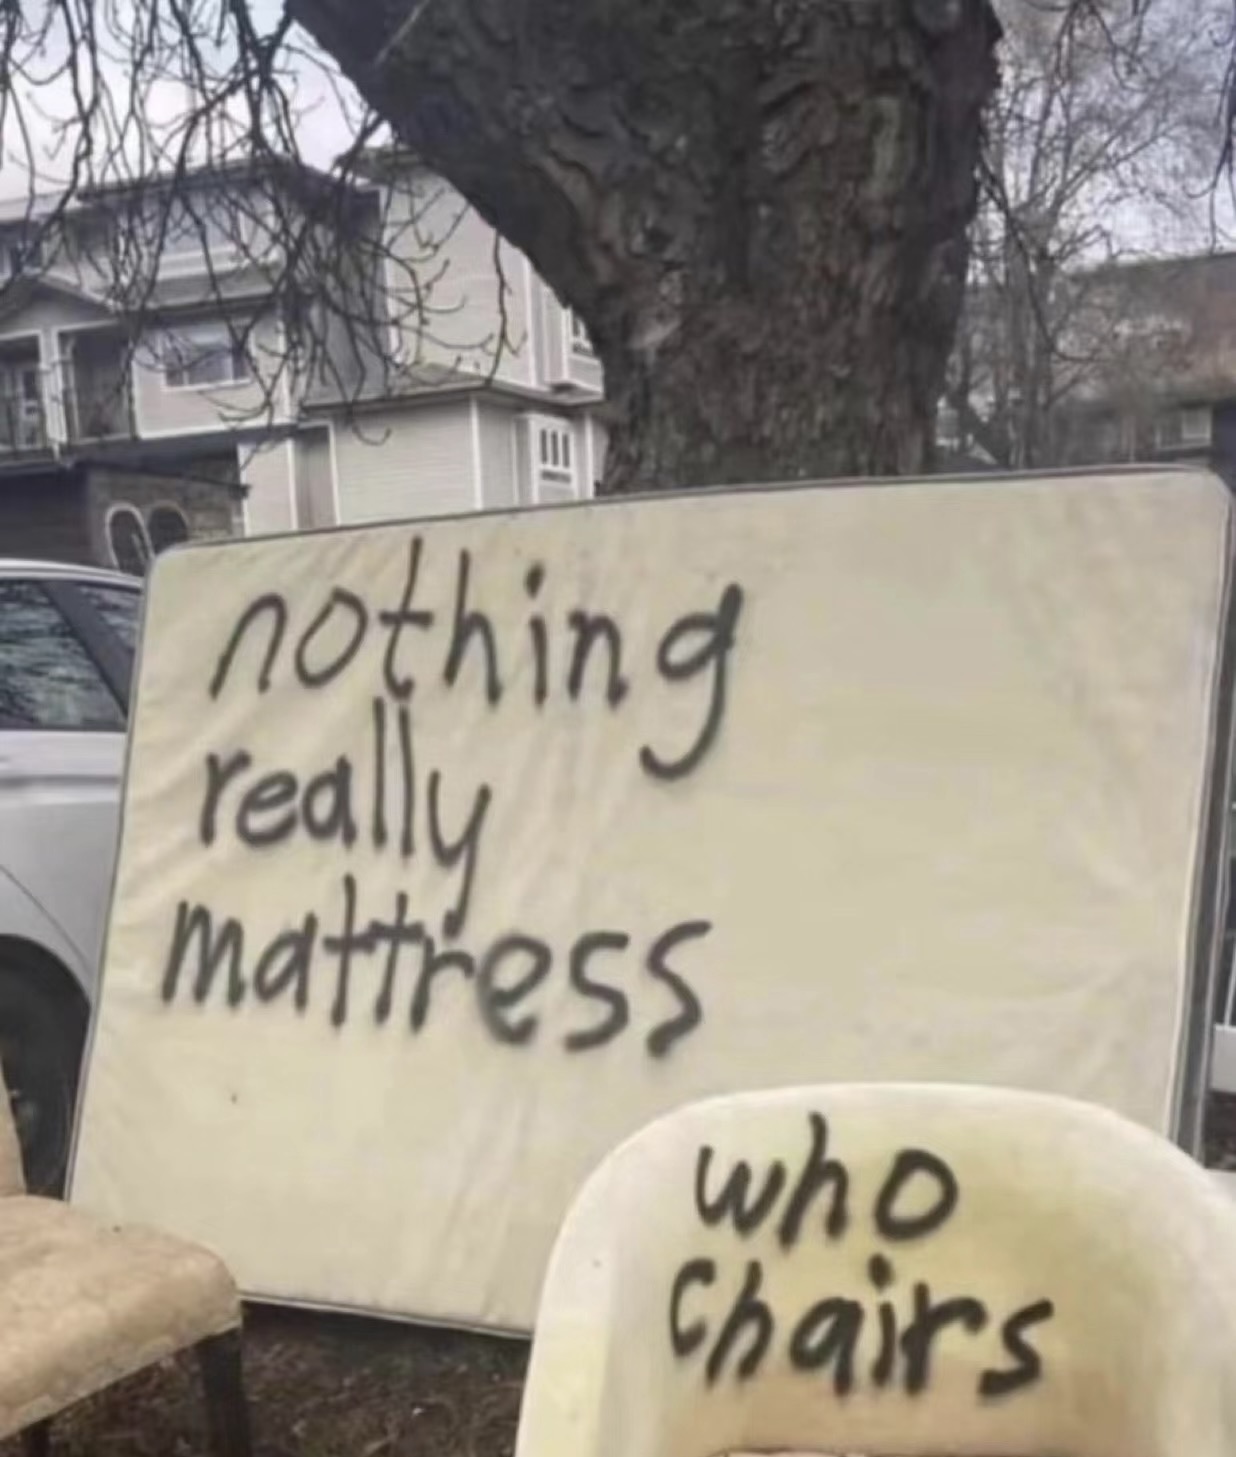 nothing
really
mattress
who
chairs